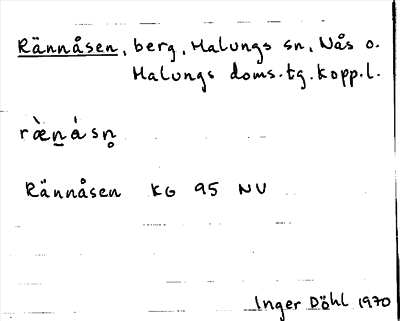 Rännåsen, berg, Malungs sn, Nås o.
Malungs doms.tg. kopp.l.
ræ̀ṉá̊sn̥
Rännåsen KG 95 NV
Inger Döhl 1970